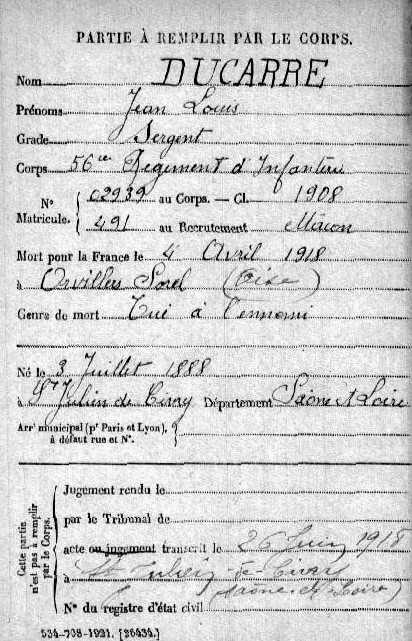 PARTIE À REMPLIR PAR LE CORPS.
Nom DUCARRE
Prénoms Jean Louis
Grade Sergent
Corps 56ème Régiment d'Infanterie
N° Matricule. { 02939 au Corps. — Cl. 1908
491 au Recrutement Mâcon
Mort pour la France le 4 Avril 1918
à Orvillers Sorel (Oise)
Genre de mort Tué à l'ennemi
Né le 3 Juillet 1888
à St Julien de Civry Département Saône et Loire
Arr^t municipal (p^r Paris et Lyon), à défaut rue et N°. {
Cette partie n'est pas à remplir par le Corps.
Jugement rendu le
par le Tribunal de
acte ou jugement transcrit le 26 Juin 1918
à St Julien-de-Civry
(Saône-et-Loire)
N° du registre d'état civil
534-708-1921. [26434.]